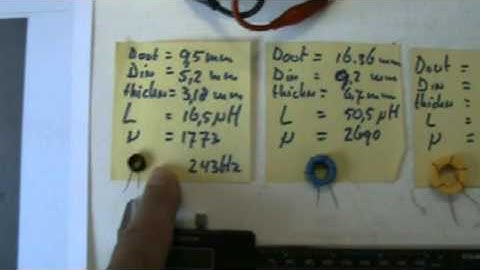 Dout = 9,5 mm
Din = 5,2 mm
thickn = 3,18 mm
L = 16,5 µH
µ = 1773
243Hz
Dout = 16.36 mm
Din = 9,2 mm
thickn = 6,7 mm
L = 50,5 µH
µ = 2690
Dout =
Din =
thickn =
L =
µ =